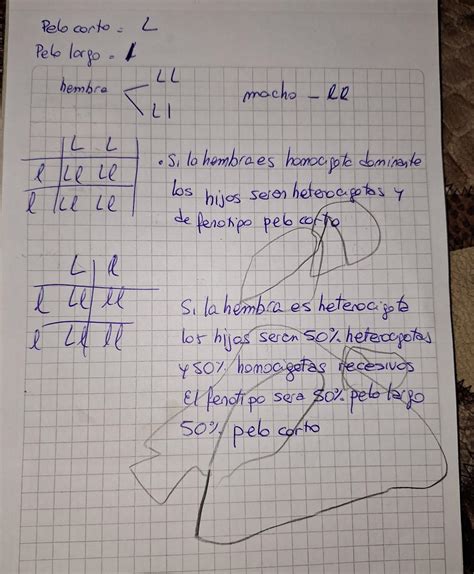 Pelo corto = L
Pelo largo = l
hembra LL
Ll
macho - ll
L L
l Ll Ll
l Ll Ll
. Si la hembra es homocigote dominante
los hijos seren heterocigotas y
de fenotipo pelo corto
L l
l Ll ll
l Ll ll
Si la hembra es heterocigote
los hijos seren 50% heterocigotas
y 50% homocigotas recesivos
El fenotipo sera 50% pelo largo
50% pelo corto